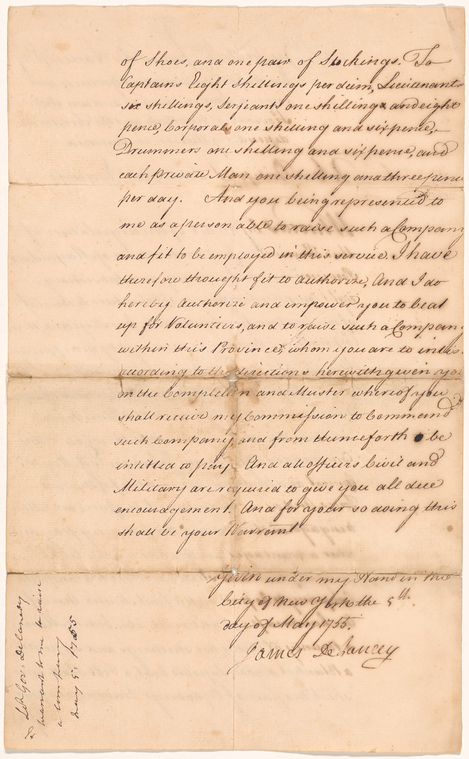 of Shoes, and one pair of Stockings. To
Captains Eight Shillings per diem, Lieutenants
six shillings, Serjeants one shilling & and eight
pence, Corporals one shilling and sixpence,
Drummers one shilling and sixpence, and
each private Man one shilling and three pence
per day. And you being represented to
me as a person able to raise such a Company
and fit to be employed in this service. I have
therefore thought fit to authorize, And I do
hereby Authorize and empower you to beat
up for Volunteers, and to raise such a Company
within this Province, whom you are to inlist
according to the directions herewith given you
on the Completion and Muster whereof you
shall receive my Commission to Command
such Company and from thenceforth to be
intitled to pay. And all officers Civil and
Military are required to give you all due
encouragement. And for your so doing this
shall be your Warrant
Given under my Hand in the
City of New York the 5th.
day of May 1755.
James De Lancey
Lt. Gov. Delancey
warrant to me to raise
a company
May 5. 1755